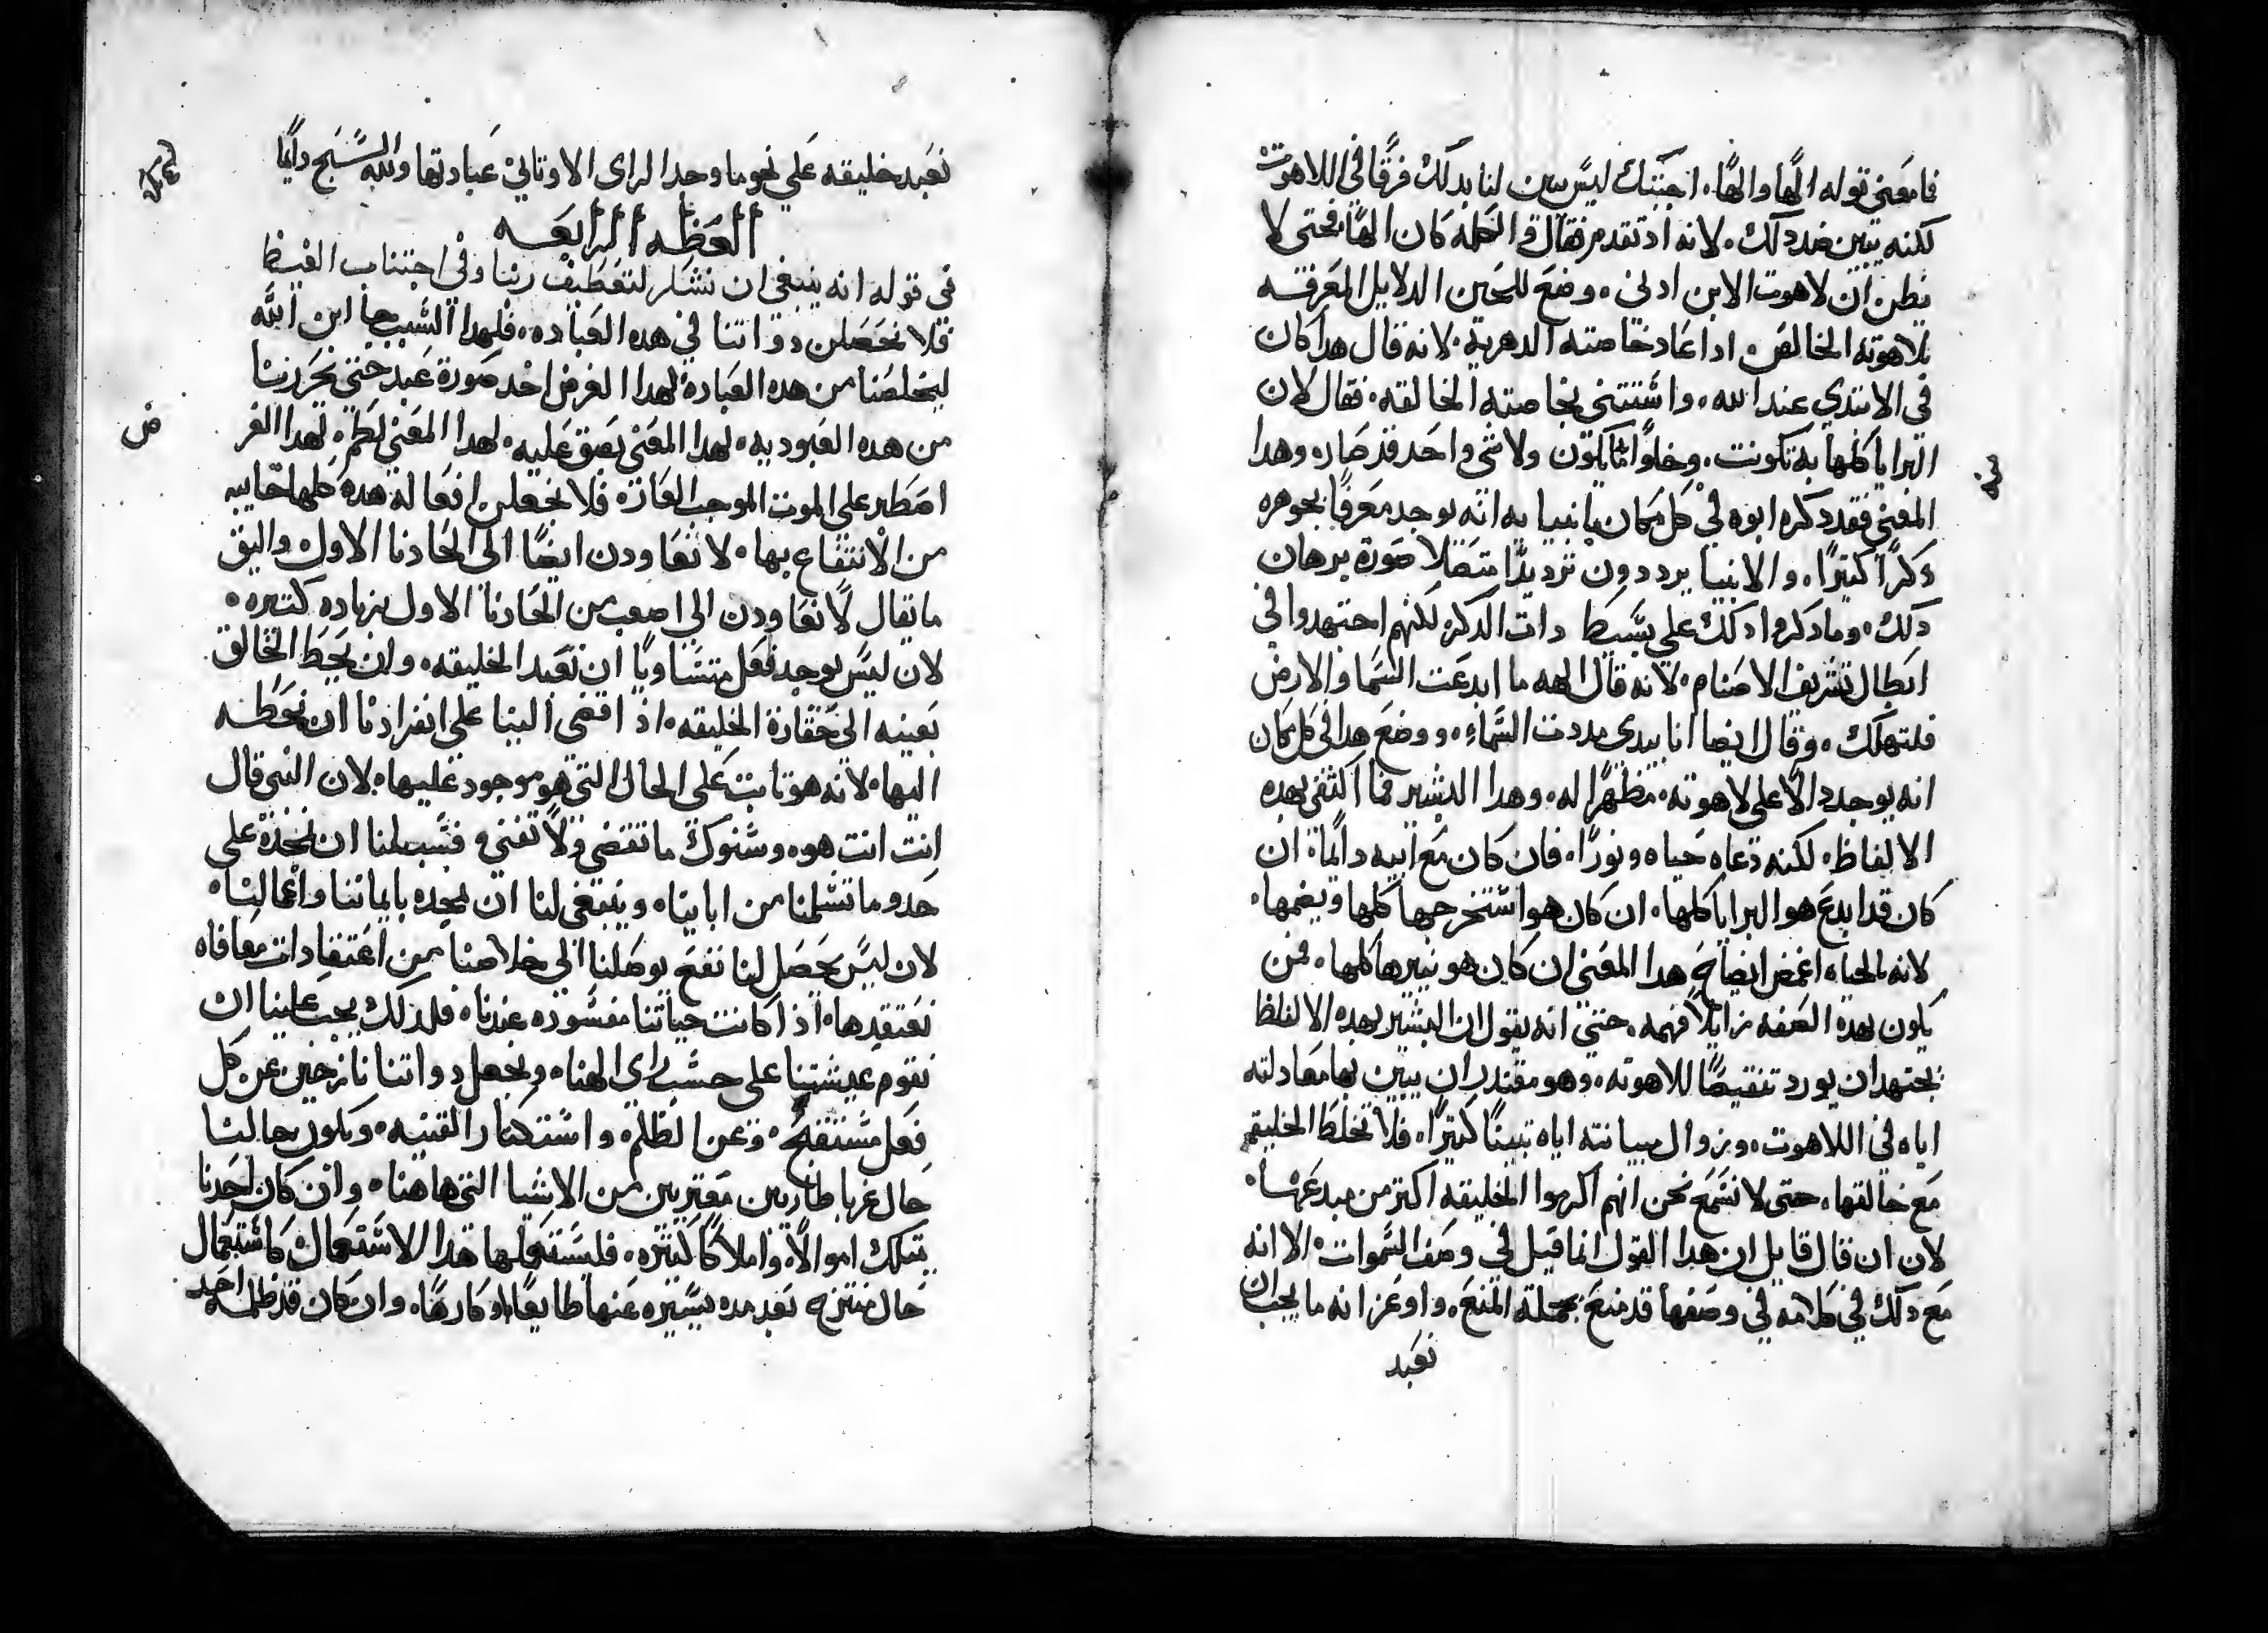 فما معني قوله الها والها. اجبتك ليس يبين لنا بدلك فرقا في اللاهوت
لكنه يتبين ضد دلك. لانه اد تقدم فقال والكلمه كان الها فحتى لا
نظن ان لاهوت الابن ادني. وضع للحين الدلايل المعرفه
بلاهوته الخالص. ادا عاد خاصته الدهرية. لانه قال هدا كان
في الابتدي عند الله. واستتني بخاصته الخالقه. فقال لان
البرايا كلها به تكونت. وخلوا ما تكون ولا شي واحد قد صار وهدا
المعني فقد دكره ابوه في كل مكان بانبيايه انه يوجد معرفا بجوهره
دكرا كتيرا. والانبيا يرددون ترديدا متصلا صورة برهان
دلك. وما دكروا دلك علي بسيط دات الدكر لكنهم اجتهدوا في
ابطال تشريف الاصنام. لانه قال الهه ما ابدعت السما والارض
فلتهلك. وقال ايضا انا بيدي مددت السماء. ووضع هدا في كل مكان
انه يوجد دالا علي لاهوته. مظهرا له. وهدا البشير فما اكتفي بهده
الالفاظ. لكنه دعاه حياه ونورا. فان كان مع ابيه دايما. ان
كان قد ابدع هو البرايا كلها. ان كان هو استخرجها كلها ويضمها.
لانه بالحياه اغمض ايضاح هدا المعني ان كان هو نيرها كلها. فمن
يكون بهده الصفه زايلا فهمه. حتي انه يقول ان البشير بهده الالفاظ
يجتهد ان يورد تنقيصا للاهوته. وهو مقتدر ان يبين بها معادلته
اباه في اللاهوت. وبزوال مباينته اياه تبيينا كتيرا. فلا تخلط الخليقه
مع خالقها. حتى لا نسمع نحن انهم اكرموا الخليقه اكتر من مبدعها.
لان ان قال قايل ان هدا القول انما قيل في وصف السموات. الا انه
مع دلك في كلامه في وصفها قد منع بجملة المنع. واوعز انه ما يجب ان
نعبد
نعبد خليقه علي نحو ما وجدا لراي الاوتاني عبادتها ولله السبح دايما
العظه الرابعه
في قوله انه ينبغي ان نشكر لتعطف ربنا وفي اجتناب الغيظ
فلا نحصلن دواتنا في هده العباده. فلهدا السبب جا ابن الله
ليخلصنا من هده العبادة لهدا الغرض اخد صورة عبد حتي يحررنا
من هده العبوديه. لهدا المعني بصق عليه. لهدا المعني لطم. لهدا الغر
ض
اصطبر علي الموت الموجب العار. فلا نجعلن افعاله هده كلها خايبه
من الانتفاع بها. لا نعاودن ايضا الي الحادنا الاول. واليق
ما يقال لا نعاودن الي اصعب من الحادنا الاول بزياده كتيره.
لان ليس يوجد فعل متساويا ان نعبد الخليقه. وان يحط الخالق
بعينه الي حقارة الخليقه. اذ افضي الينا علي انفرادنا ان نحطه
اليها. لانه هو تابت علي الحال التي هو موجود عليها. لان النبي قال
انت انت هو. وسنوك ما تنقضي ولا تفني. فسبيلنا ان نمجده علي
حدو ما تسلمنا من اباينا. وينبغي لنا ان نمجده بايماننا واعمالنا.
لان ليس يحصل لنا نفع يوصلنا الي خلاصنا من اعتقادات معافاه
نعتقدها. اذا كانت حياتنا مفسوده عندنا. فلدلك يجب علينا ان
نقوم عيشتنا علي حسب راي الهنا. ونجعل دواتنا نازحين عن كل
فعل مستقبح. وعن الظلم. واستكتار القنيه. ونكون بحالنا
حال غربا طاريين مغتربين من الاشيا التي هاهنا. وان كان احدنا
يتملك اموالا. واملاكا كتيره. فليستعملها هدا الاستعمال. كاستعمال
حال منتزح بعد مده يسيره عنها طايعا او كارها. وان كان قد ظلمه احد